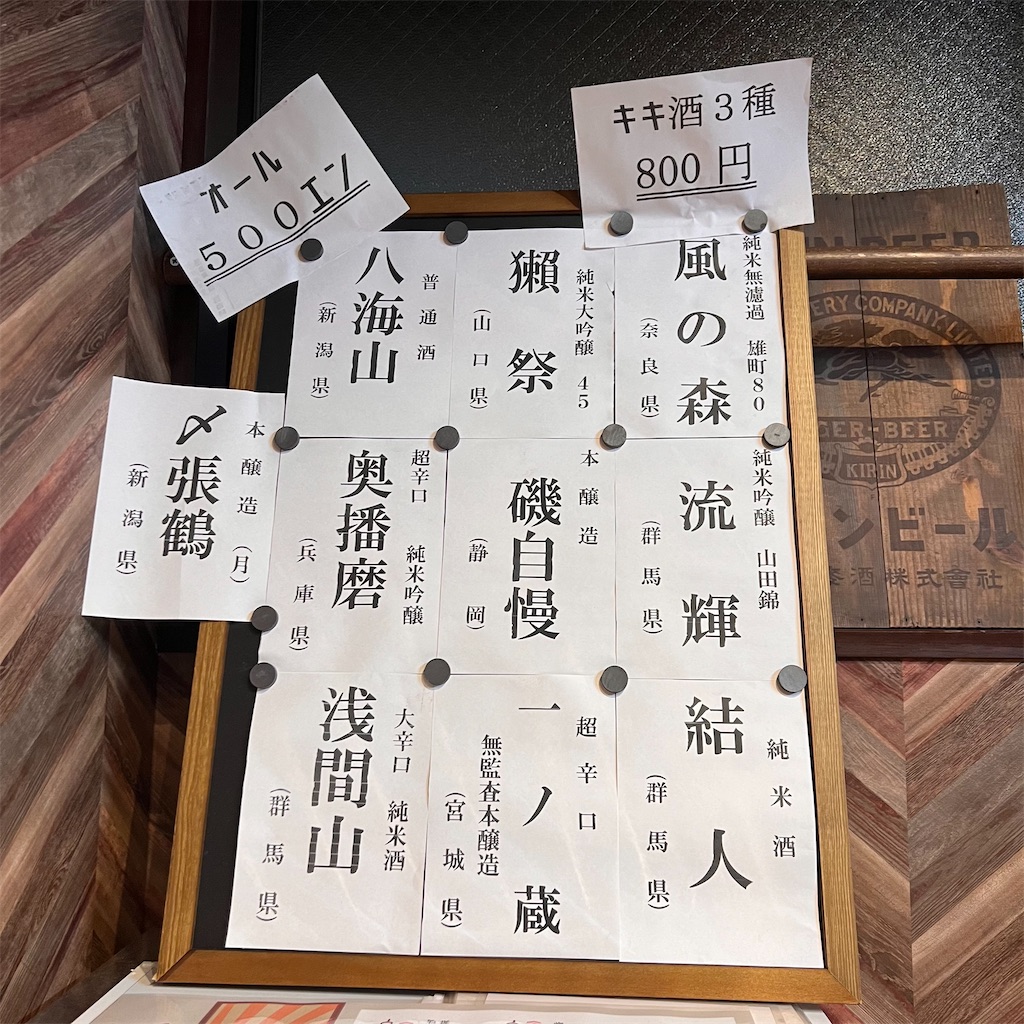 オール
５００エン
キキ酒３種
800 円
純米無濾過　雄町８０
風の森
（奈良県）
純米大吟醸　４５
獺祭
（山口県）
普通酒
八海山
（新潟県）
純米吟醸　山田錦
流輝
（群馬県）
本醸造
磯自慢
（静岡）
超辛口　純米吟醸
奥播磨
（兵庫県）
本醸造（月）
〆張鶴
（新潟県）
純米酒
結人
（群馬県）
超辛口
一ノ蔵
無監査本醸造
（宮城県）
大辛口　純米酒
浅間山
（群馬県）
BEER
ERY COMPANY, LIMITED
GER BEER
KIRIN
ンビール
酒株式會社